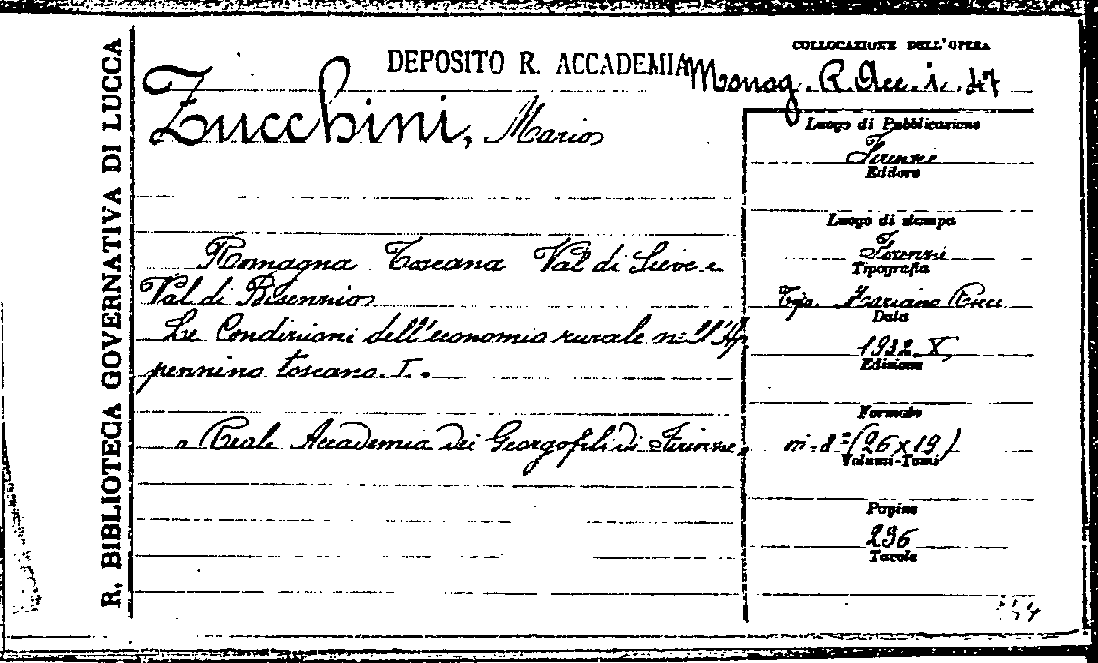 R. BIBLIOTECA GOVERNATIVA DI LUCCA
DEPOSITO R. ACCADEMIA
COLLOCAZIONE DELL'OPERA
Monog. R. Acc. i. 47
Zucchini, Mario
Romagna Toscana Val di Sieve e
Val di Bisenzio
Le Condizioni dell'economia rurale nell'Ap
pennino toscano. I.
Reale Accademia dei Georgofili di Firenze.
Luogo di Pubblicazione
Firenze
Editore
Luogo di stampa
Firenze
Tipografia
Tip. Mariano Ricci
Data
1932. X,
Edizione
Formato
in-8° (26 x 19)
Volumi-Tomi
Pagine
296
Tavole